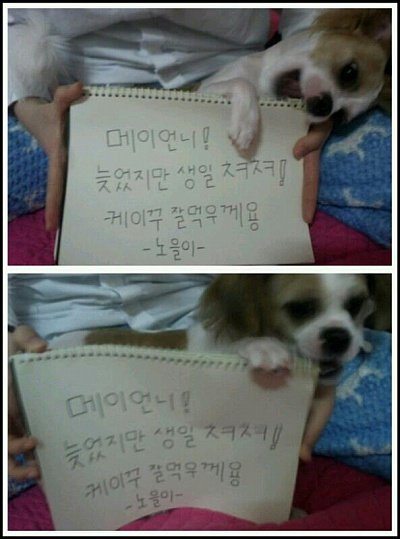 메이언니!
늦었지만 생일 ㅊㅋㅊㅋ!
케이꾸 잘먹우께용
-노을이-
메이언니!
늦었지만 생일 ㅊㅋㅊㅋ!
케이꾸 잘먹우께용
-노을이-